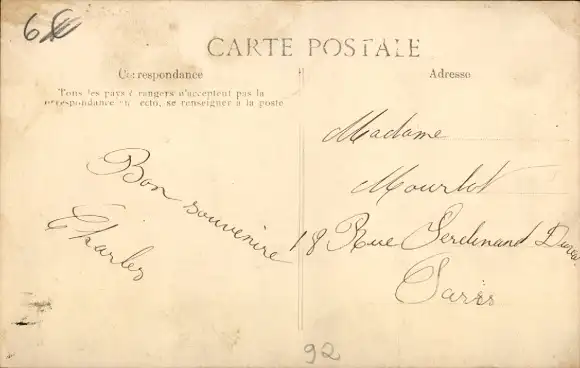 6
CARTE POSTALE
Correspondance
Tous les pays étrangers n'acceptent pas la
correspondance au recto, se renseigner à la poste
Adresse
Madame
Mourlot
18 Rue Ferdinand Duval
Paris
Bon souvenire
Charles
92